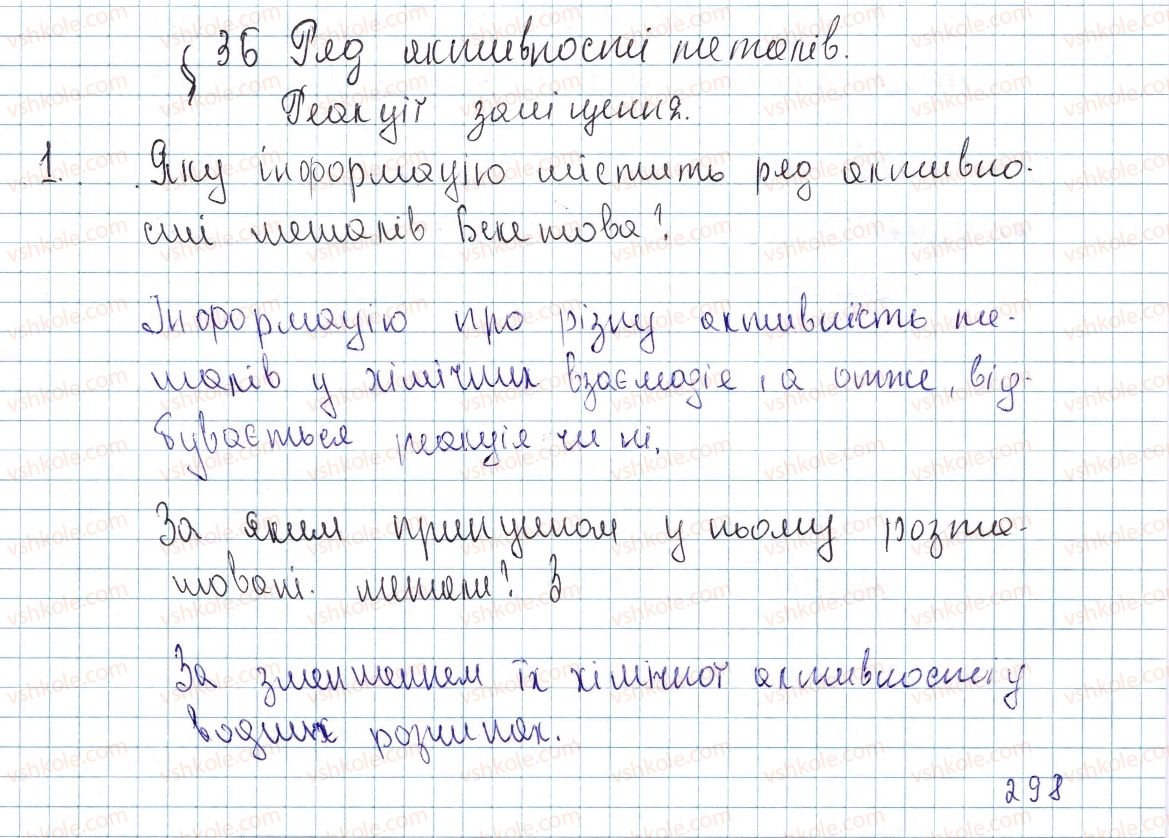 § 36 Ряд активності металів.
Реакції заміщення.
1. Яку інформацію містить ряд активно-
сті металів Бекетова?
Інформацію про різну активність ме-
талів у хімічних взаємодія, а отже, від-
бувається реакція чи ні.
За яким принципом у ньому розта-
шовані метали?
За зменшенням їх хімічної активності у
водних розчинах.
298